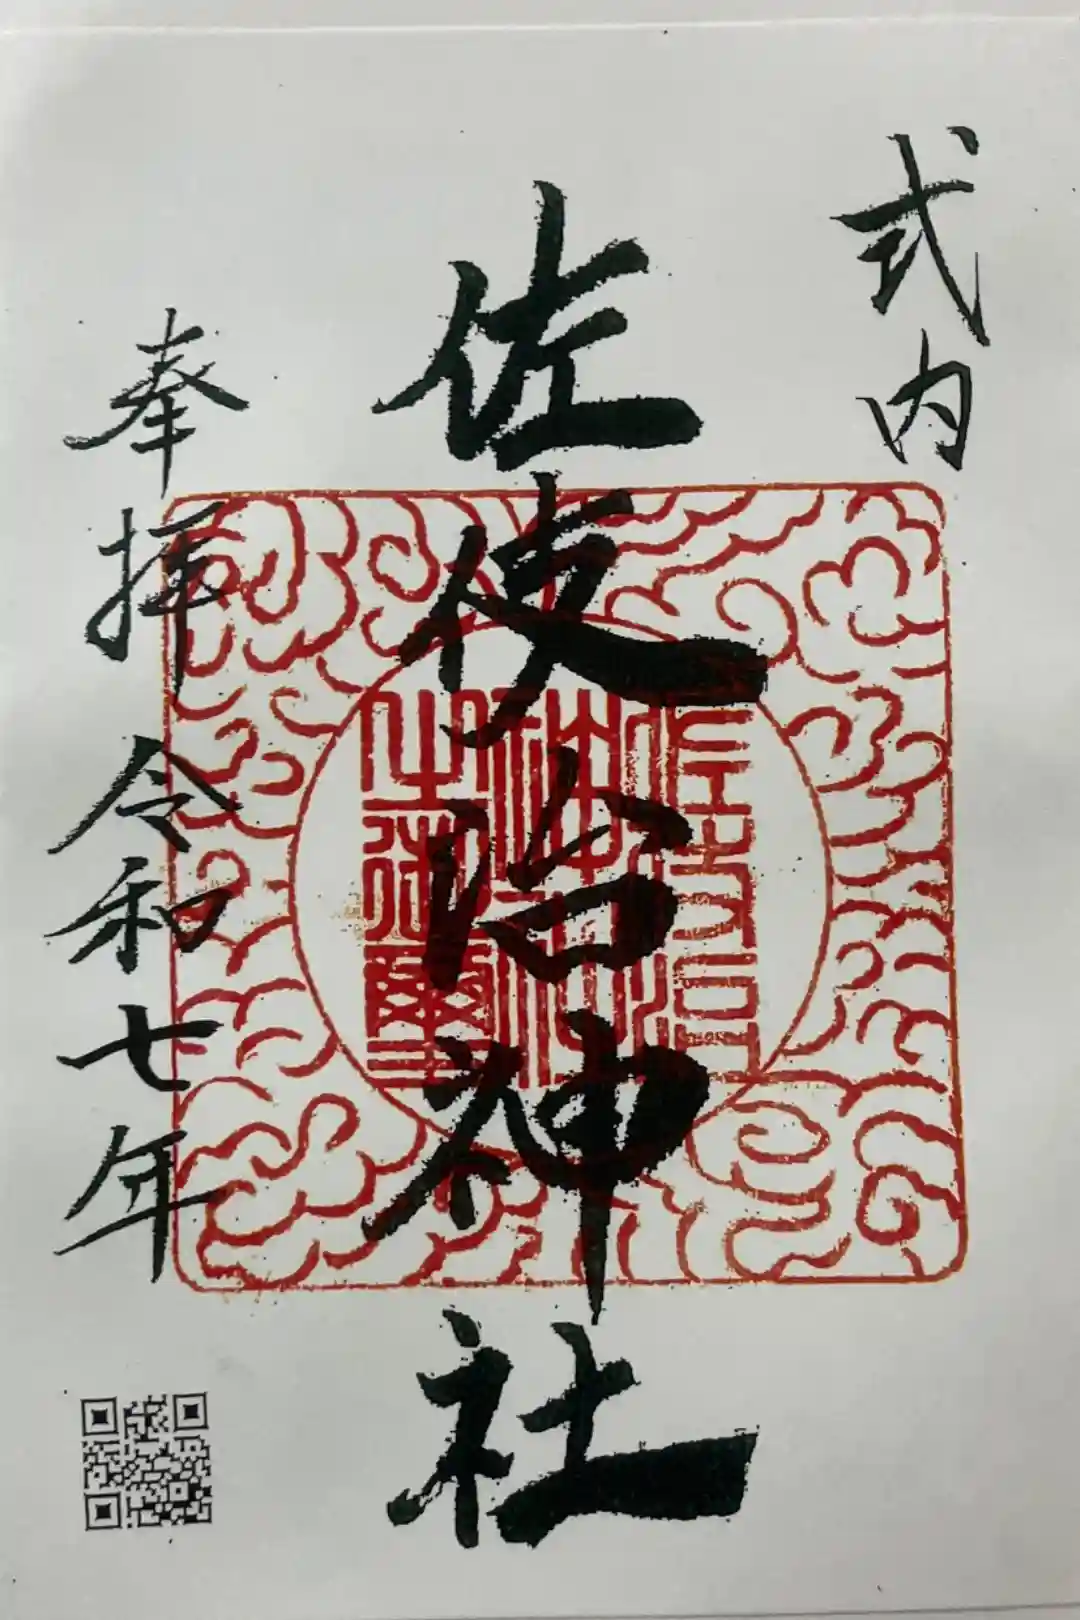 式内
佐使治神社
奉拝 令和七年